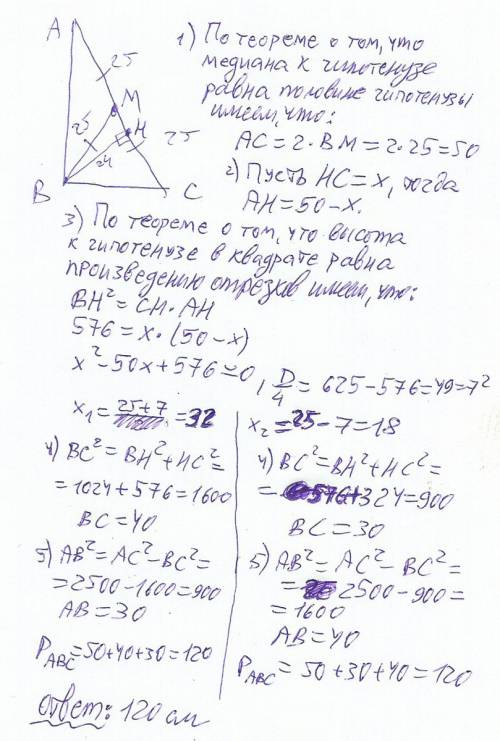 A
25
M
H
25
24
25
B
C
1) По теореме о том, что
медиана к гипотенузе
равна половине гипотенузы
имеем, что:
AC = 2·BM = 2·25 = 50
2) Пусть HC = x, тогда
AH = 50 - x.
3) По теореме о том, что высота
к гипотенузе в квадрате равна
произведению отрезков имеем, что:
BH² = CH·AH
576 = x·(50 - x)
x² - 50x + 576 = 0, D/4 = 625 - 576 = 49 = 7²
x₁ = 25 + 7 = 32
4) BC² = BH² + HC² =
= 1024 + 576 = 1600
BC = 40
5) AB² = AC² - BC² =
= 2500 - 1600 = 900
AB = 30
P_ABC = 50 + 40 + 30 = 120
x₂ = 25 - 7 = 18
4) BC² = BH² + HC² =
= 576 + 324 = 900
BC = 30
5) AB² = AC² - BC² =
= 2500 - 900 =
= 1600
AB = 40
P_ABC = 50 + 30 + 40 = 120
ответ: 120 см